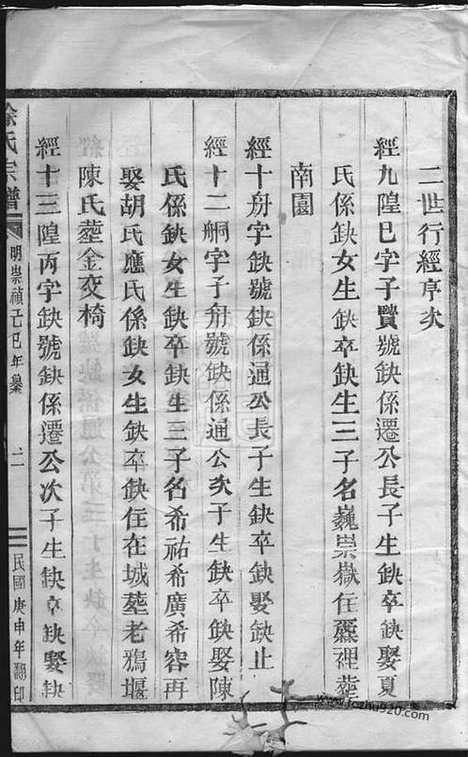 二世行經亨次
經九隍巳字子賢號缺係遷公長子生缺卒缺娶夏
氏係缺女生缺卒缺生三子名巍崇嶽住蘪裡塟
南園
經十舟字缺號缺係通公長子生缺卒缺娶缺止
經十二舸字子舟號缺係通公次子生缺卒缺娶陳
氏係缺女生缺卒缺生三子名希祐希廣希容再
娶胡氏應氏係缺女生缺卒缺住在城塟老鴉堰
陳氏塟金交椅
經十三隍丙字缺號缺係遷公次子生缺卒缺娶缺
徐氏宗譜
明崇禎己巳年纂
二
民國庚申年翻印
www.jiazhu920.com